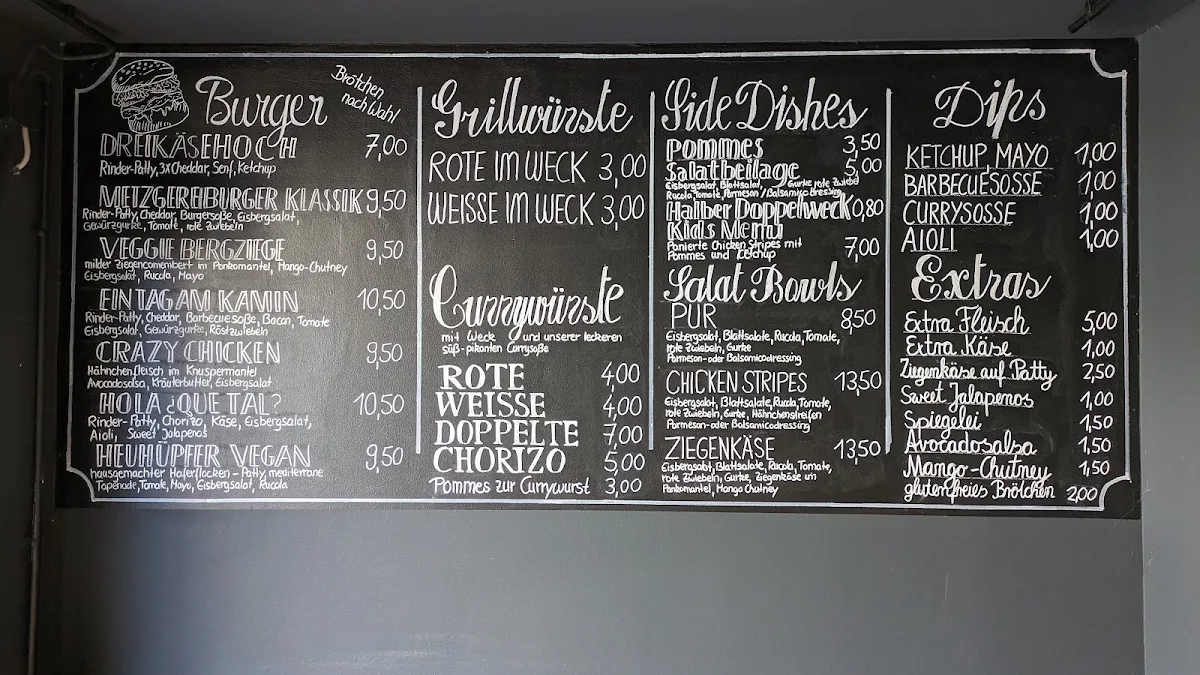 Burger
Brötchen
nach Wahl
DREIKÄSEHOCH 7,00
Rinder-Patty, 3x Cheddar, Senf, Ketchup
METZGEREIBURGER KLASSIK 9,50
Rinder-Patty, Cheddar, Burgersoße, Eisbergsalat,
Gewürzgurke, Tomate, rote Zwiebeln
VEGGIE BERGZIEGE 9,50
milder Ziegencamembert im Pankomantel, Mango-Chutney
Eisbergsalat, Rucola, Mayo
EIN TAG AM KAMIN 10,50
Rinder-Patty, Cheddar, Barbecuesoße, Bacon, Tomate
Eisbergsalat, Gewürzgurke, Röstzwiebeln
CRAZY CHICKEN 9,50
Hähnchenfleisch im Knuspermantel
Avocadosalsa, Kräuterbutter, Eisbergsalat
HOLA ¿QUE TAL? 10,50
Rinder-Patty, Chorizo, Käse, Eisbergsalat,
Aioli, Sweet Jalapenos
HEUHÜPFER VEGAN 9,50
hausgemachter Haferflocken-Patty, mediterrane
Tapenade, Tomate, Mayo, Eisbergsalat, Rucola
Grillwürste
ROTE IM WECK 3,00
WEISSE IM WECK 3,00
Currywürste
mit Weck und unserer leckeren
süß-pikanten Currysoße
ROTE 4,00
WEISSE 4,00
DOPPELTE 7,00
CHORIZO 5,00
Pommes zur Currywurst 3,00
Side Dishes
Pommes 3,50
Salatbeilage 5,00
Eisbergsalat, Blattsalat, Gurke rote Zwiebel
Rucola, Tomate, Parmesan / Balsamico Dressing
Halber Doppelweck 0,80
Kids Menü
Panierte Chicken Stripes mit 7,00
Pommes und Ketchup
Salat Bowls
PUR 8,50
Eisbergsalat, Blattsalate, Rucola, Tomate,
rote Zwiebeln, Gurke
Parmesan- oder Balsamicodressing
CHICKEN STRIPES 13,50
Eisbergsalat, Blattsalate, Rucola, Tomate,
rote Zwiebeln, Gurke, Hähnchenstreifen
Parmesan- oder Balsamicodressing
ZIEGENKÄSE 13,50
Eisbergsalat, Blattsalate, Rucola, Tomate,
rote Zwiebeln, Gurke, Ziegenkäse im
Pankomantel, Mango Chutney
Dips
KETCHUP, MAYO 1,00
BARBECUESOSSE 1,00
CURRYSOSSE 1,00
AIOLI 1,00
Extras
Extra Fleisch 5,00
Extra Käse 1,00
Ziegenkäse auf Patty 2,50
Sweet Jalapenos 1,00
Spiegelei 1,50
Avocadosalsa 1,50
Mango-Chutney 1,50
glutenfreies Brötchen 2,00